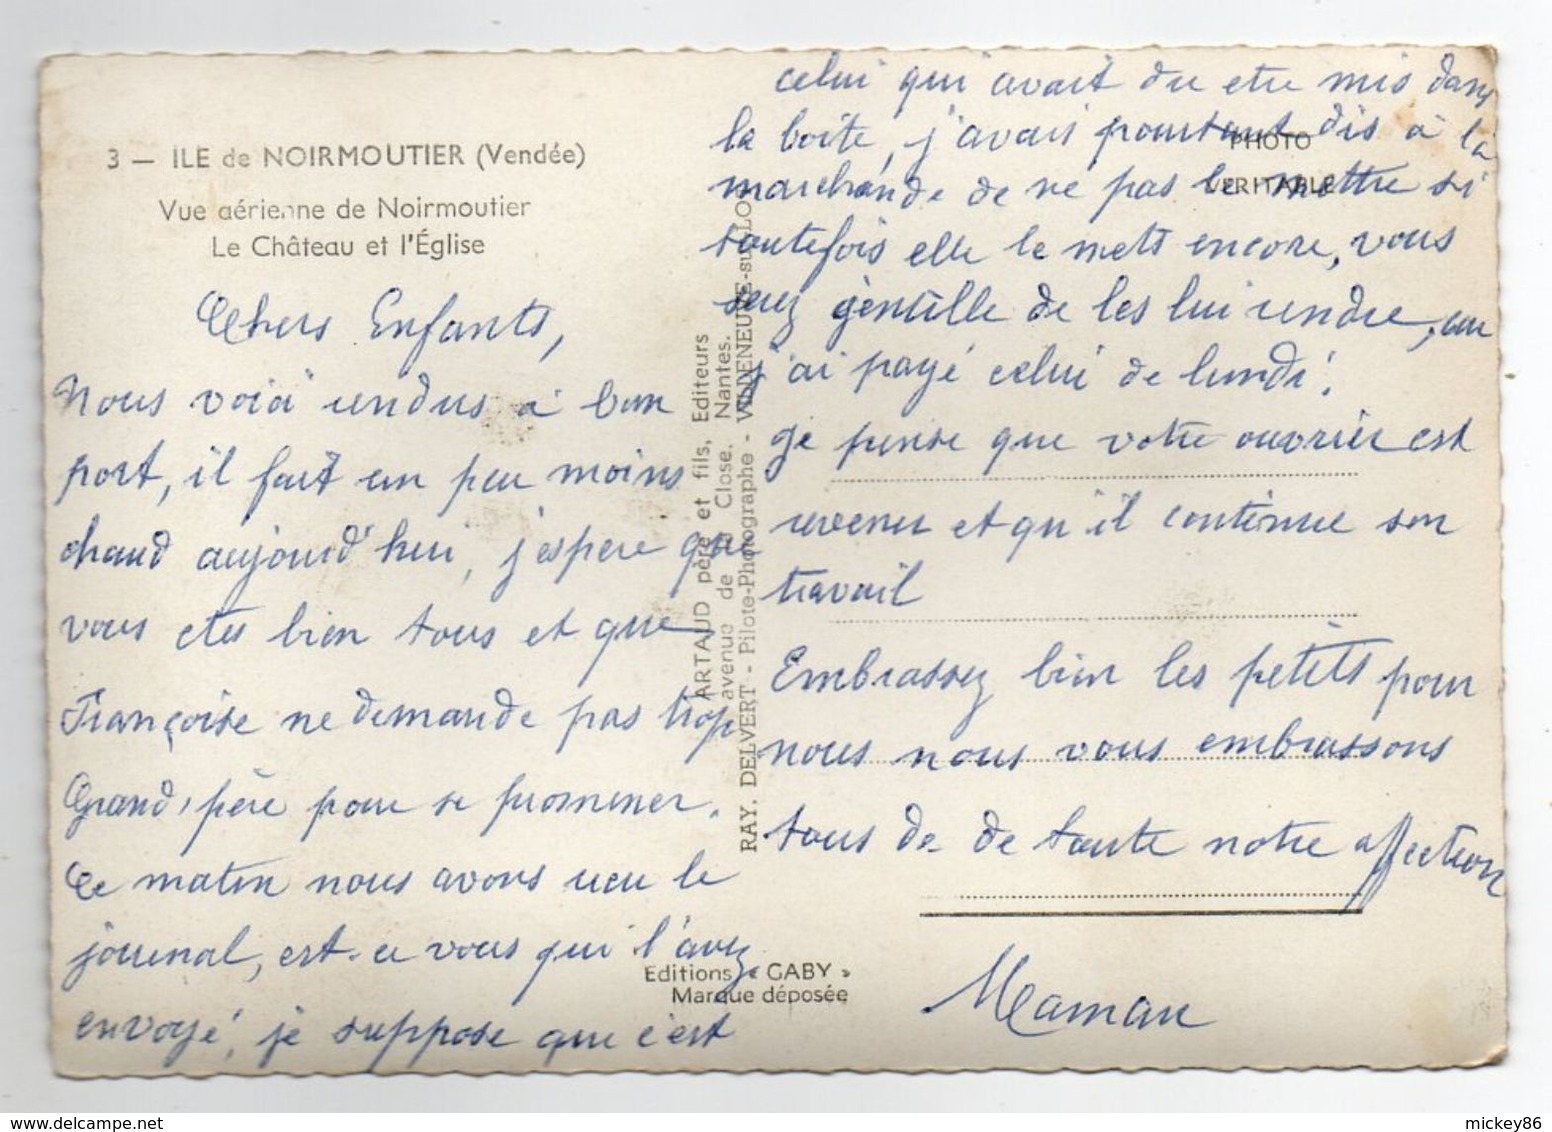 3 — ILE de NOIRMOUTIER (Vendée)
Vue aérienne de Noirmoutier
Le Château et l'Église
Chers Enfants,
Nous voià rendus à bon
port, il fait un peu moins
chaud aujourd'hui, j'espere que
vous etes bien tous et que
Françoise ne demande pas trop
Grand, père pour se promener.
Ce matin nous avons reçu le
journal, est-ce vous qui l'avez
envoyé, je suppose que c'est
celui qui avait du etre mis dans
la boite, j'avais pourtant dis à la
marchande de ne pas le mettre si
toutefois elle le mett encore, vous
serez gentille de les lui rendre, car
j'ai payé celui de lundi.
Je pense que votre ouvrier est
revenu et qu'il continue son
travail
Embrassez bien les petits pour
nous nous vous embrassons
tous de de toute notre affection
Maman
PHOTO
VERITABLE
ARTAUD père et fils, Editeurs
avenue de Close. Nantes.
RAY. DELVERT - Pilote-Photographe - VILLENEUVE-sur-LOT
Editions « GABY »
Marque déposée
mickey86